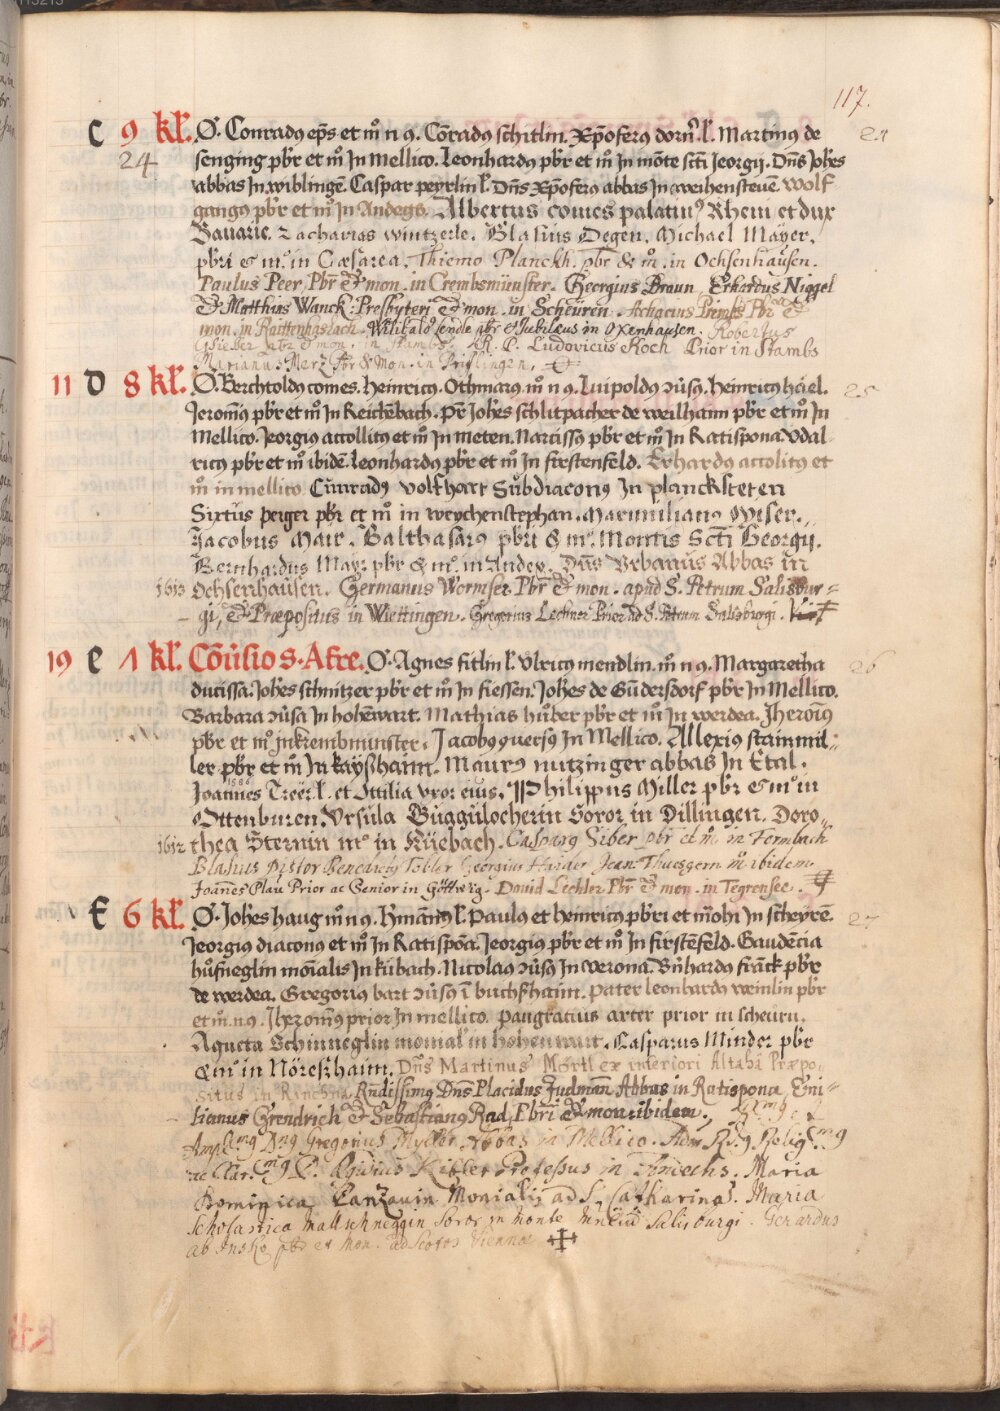 117.
C 9 kl. O. Conradꝰ ep̄s et m̊ n ꝯ. Cōradꝰ schitlin. Xp̄oferꝰ dorn̄ l̄. Martinꝰ de 24
24 senging pb̄r et m̊ In Mellico. Leonhardꝰ pb̄r et m̊ In mōte sct̄i Jeorgij. Dn̄s Joh̄es
abbas In wiblingē. Caspar peyrlin l̄. Dn̄s Xp̄oferꝰ abbas In weihensteuē. Wolf
gangꝰ pb̄r et m̊ In Andegs. Albertus comes palatinꝰ Rheni et dux
Bavarie. Zacharias wintzerle. Blasius Degen. Michael Mayer,
pb̄ri & m̊ in Cæsarea. Thiemo Planckh. pb̄r & m̊. in Ochsenhausen.
Paulus Peer Pb̄r & mon. in Crembsmünster. Georgius Braun, Erhardus Niggel
& Matthias Wanck: Presbyteri & mon. in Scheüren. Achacius Pb̄r &
mon. in Raittenhaslach. Wilibald pb̄r & Jubilæus in Oxenhausen. Robertus
pb̄r & mon. in Stambs. R. P. Ludovicus Koch Prior in Stambs
Marianus Merz Pb̄r & Mon. in Prislingen.
11 D 8 kl. O. Berchtoldꝰ comes. Heinricꝰ. Othmarꝰ. m̊ n ꝯ. Luipoldꝰ ꝯūsꝰ. Heinricꝰ hāel. 25
Jeromꝰ pb̄r et m̊ In Reichēbach. Pr̄ Joh̄es schlitpacher de weilhaim pb̄r et m̊ In
Mellico. Jeorgiꝰ accolitꝰ et m̊ In meten. Narcissꝰ pb̄r et m̊ In Ratispona. Vdal
ricꝰ pb̄r et m̊ ibidē. Leonhardꝰ pb̄r et m̊ In firstenfeld. Erhardꝰ accolitꝰ et
m̊ in mellico. Cūnradꝰ volkhart Subdiaconꝰ In plancksteten
Sixtus peiger pb̄r et m̊ in weychenstephan. Maximilianꝰ Wiser.
Jacobus Mair. Balthasarꝰ pb̄ri & m̊. Montis Sct̄i Georgij.
Bernhardus Mayr pb̄r & m̊. in Andex. Dn̄s Vrbanus Abbas in
1613 Ochsenhausen. Germanus Wormser Pb̄r & mon. apud S. Petrum Salisbur=
gi, & Præpositus in Wiettingen. Gregorius Lechner Prior ad S. Petrum Salisburgi.
19 E 7 kl. Cōuīsio S. Afre. O. Agnes fitlin l̄. Vlricꝰ mendlin. m̊ n ꝯ. Margaretha 26
ducissa. Joh̄es schnitzer pb̄r et m̊ In fiessen. Joh̄es de Gūdersdorf pb̄r In Mellico.
Barbara ꝯūsa In hohēwart. Mathias huber pb̄r et m̊ In werdea. Jheronꝰ
pb̄r et m̊ Jnkrembmunster. Jacobꝰ ꝯuersꝰ In Mellico. Allexiꝰ stainmil=
ler pb̄r et m̊ In kayßhaim. Maurꝰ nutzinger abbas In Etal.
Joannes Treer l̄. et Ottilia vxor eius. Philippus Miller pb̄r & m̊ in
Ottenburen. Vrsula Büggülocherin Soror in Dillingen. Doro=
1612 thea Sternin m̊ in Küebach. Casparꝰ Siber pb̄r et m̊ in Formbach
Blasius pistor Benedictꝰ Tobler Georgius Haider Jean m̊ ibidem
Joannes Plau Prior ac Senior in Göttwig. David Lechler Pb̄r & mon. in Tegrensee.
F 6 kl. O. Joh̄es haug m̊ n ꝯ. Hmānꝰ l̄. Paulꝰ et heinricꝰ pb̄ri et mōhi In scheyrē. 27
Jeorgiꝰ diaconꝰ et m̊ In Ratispōa. Jeorgiꝰ pb̄r et m̊ In firstēfeld. Gaudēcia
hufneglin moīalis In kubach. Nicolaꝰ ꝯūsꝰ In verona. Bn̄hardꝰ frāck pb̄r
de werdea. Gregoriꝰ bart ꝯūsꝰ ī buchßhaim. pater leonhardꝰ weinlin pb̄r
et m̊. n ꝯ. Jheronꝰ prior In mellico. pangratius arter prior in scheurn.
Agneta Schinneglin monial̄ in hohenwart. Casparus Minder pb̄r
& m̊ in Nöreßhaim. Dn̄s Martinus Mörtl ex inferiori Altaha Præpo=
situs in Rinchna. Rn̄dissimꝰ Dn̄s Placidus Judman Abbas in Ratispona, Emi=
lianus Grendrich & Sebastianꝰ Rad, Pb̄ri & mon. ibidem.
Ampl.mꝰ Dn̄ꝰ Gregorius Myller Abbas in Mellico. Adm. R.dꝰ Relig.mꝰ
ac Clar.mꝰ P. Ægidius Kibler Professus in Andechs. Maria
Dominica Panzauin Monialis ad S. Catharina. Maria
Scholastica Soror in Monte Salisburgi. Gerardus
ab Insko pb̄r et Mon. ad Scotos Viennæ